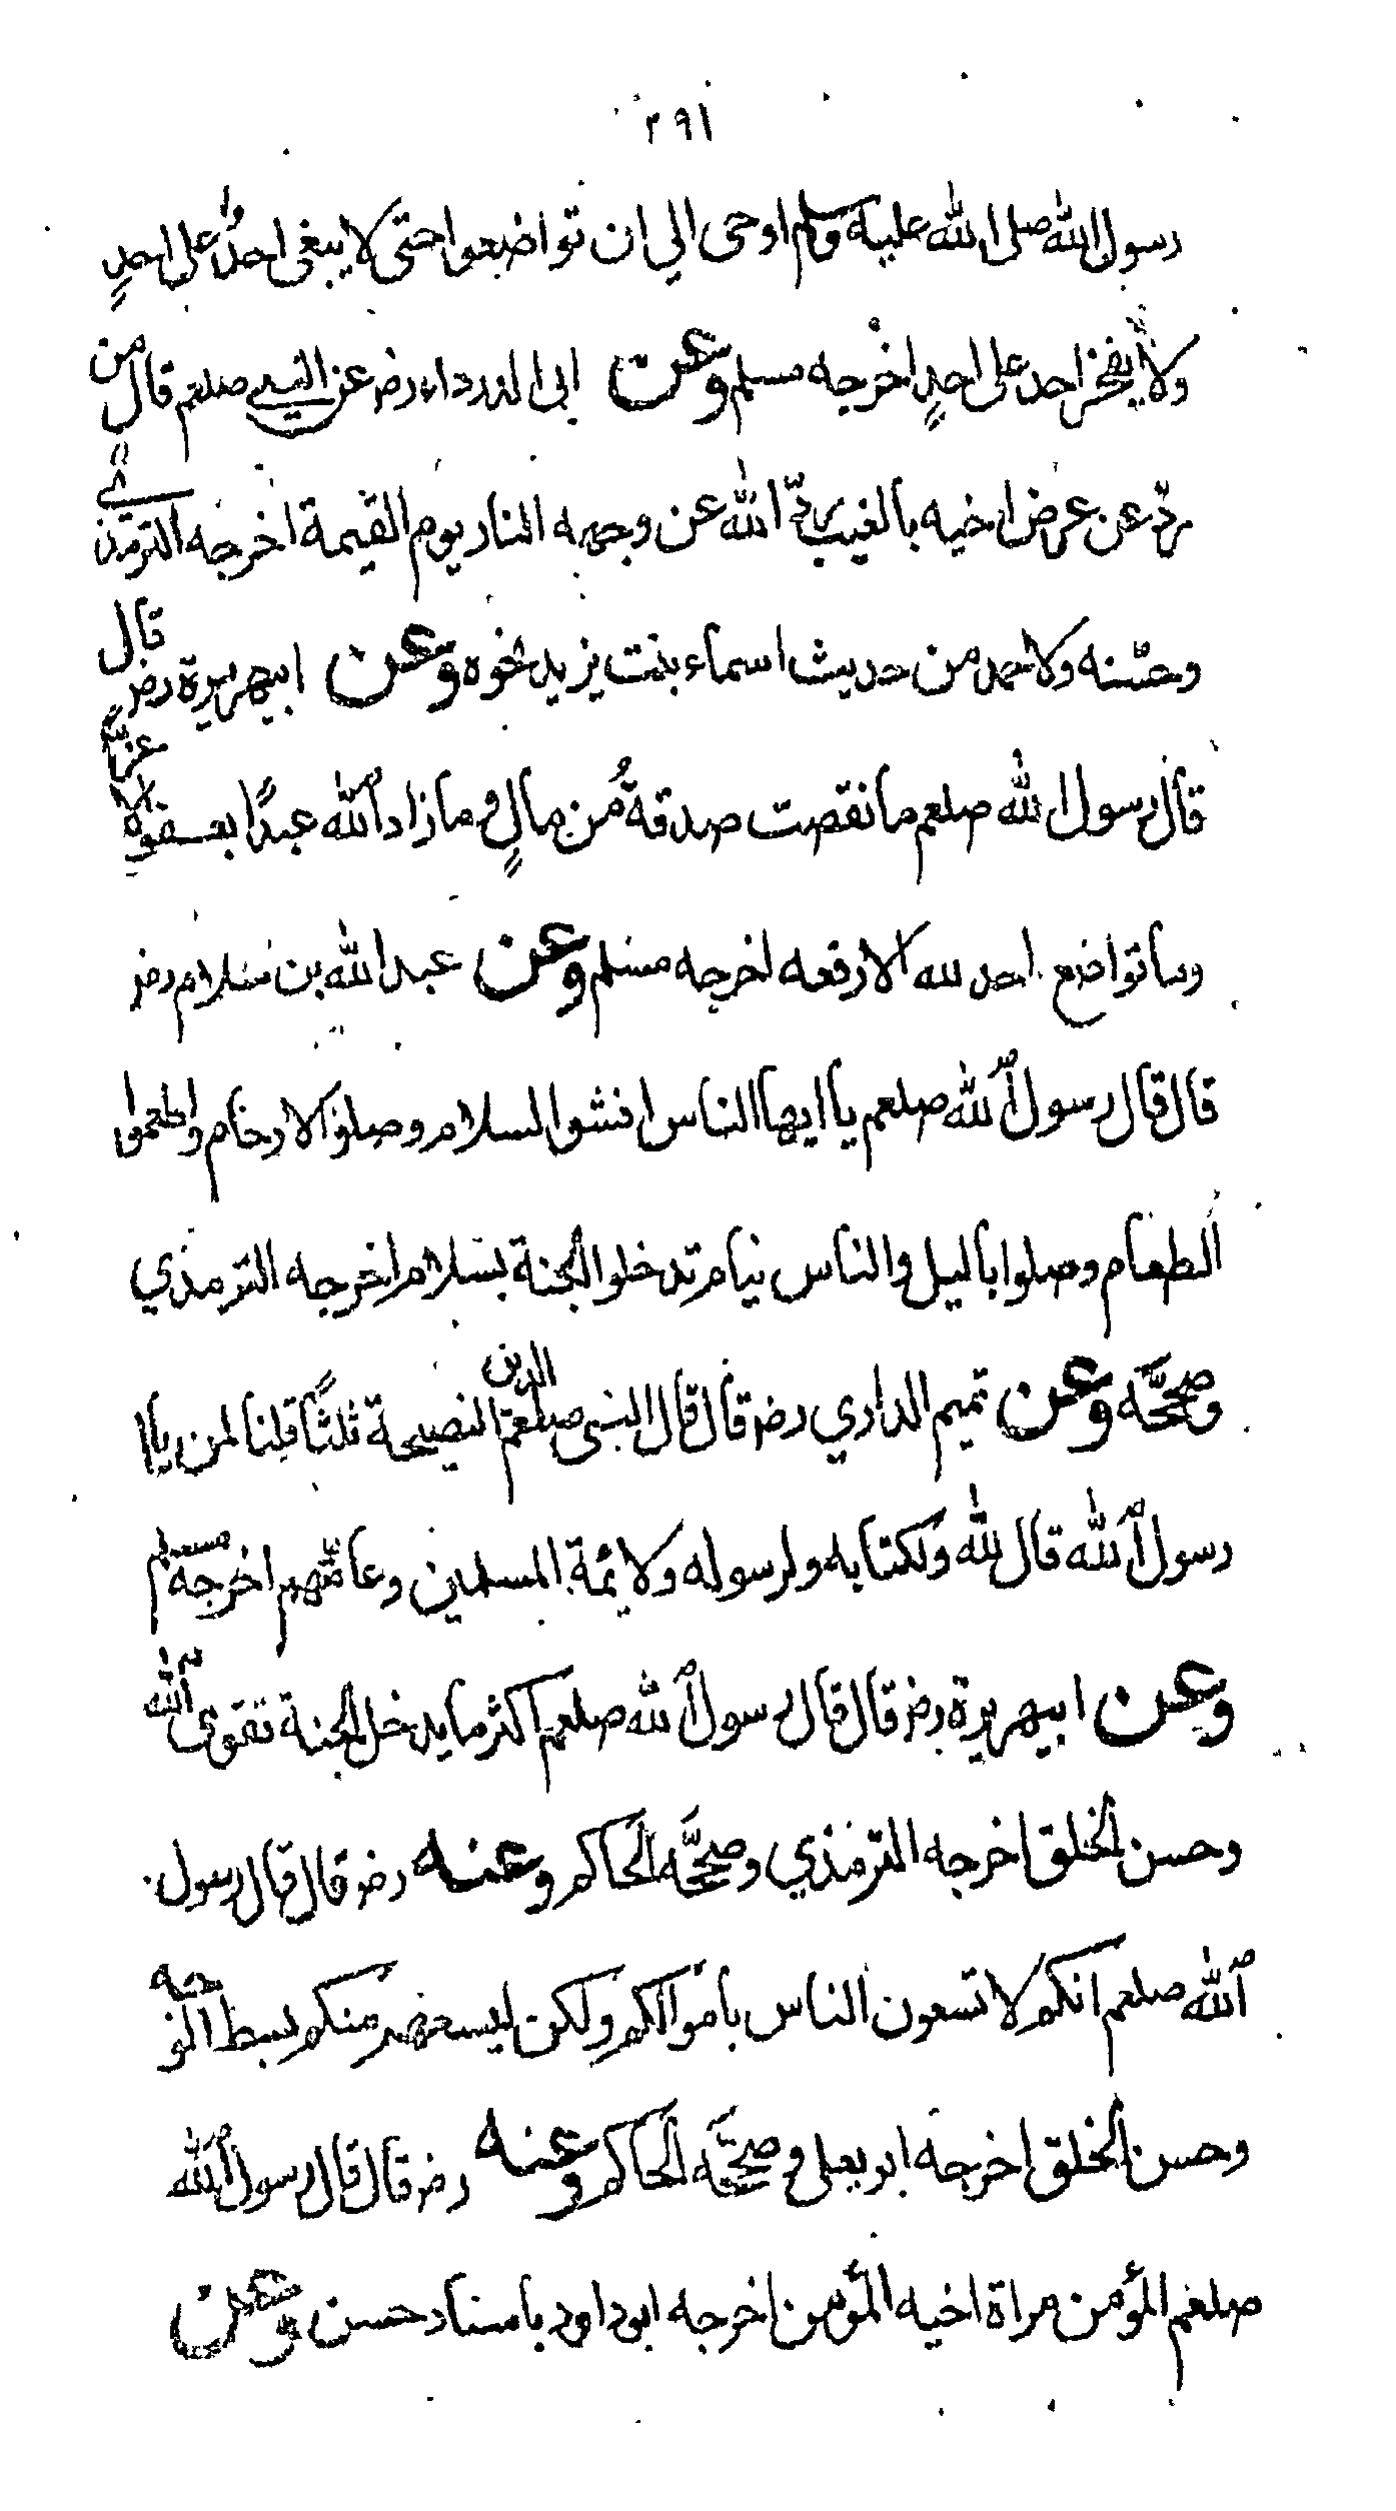 ٢٩١
رسول الله صلى الله عليه وسلم اوحى الي ان تواضعوا حتى لا يبغى احدٌ على احدٍ
ولا يفخر احد على احدٍ اخرجه مسلم وعن ابى الدرداء رضر عن النبي صلعم قال من
ردّ عن عرض اخيه بالغيب ردّ الله عن وجهه النار يوم القيمة اخرجه الترمذي
وحسّنه ولاحمد من حديث اسماء بنت يزيد نحوه وعن ابيهريرة رضر قال
قال رسول الله صلعم ما نقصت صدقةٌ من مالٍ وما زاد الله عبدًا بعفو الا عزّا
وما تواضع احد لله الا رفعه اخرجه مسلم وعن عبد الله بن سلام رضر
قال قال رسول الله صلعم يا ايها الناس افشوا السلام وصلوا الارحام واطعموا
الطعام وصلوا بالليل والناس نيام تدخلوا الجنة بسلام اخرجه الترمذي
وصحّحه وعن تميم الداري رضر قال قال النبى صلعم الدين النصيحة ثلثًا قلنا لمن يا
رسول الله قال لله ولكتابه ولرسوله ولائمة المسلمين وعامّتهم اخرجه مسلم
وعن ابيهريرة رضر قال قال رسول الله صلعم اكثر ما يدخل الجنة تقوى الله
وحسن الخلق اخرجه الترمذي وصحّحه الحاكم وعنه رضر قال قال رسول
الله صلعم انكم لا تسعون الناس باموالكم ولكن ليسعهم منكم بسط الوجه
وحسن الخلق اخرجه ابو يعلى وصحّحه الحاكم وعنه رضر قال قال رسول الله
صلعم المؤمن مراة اخيه المؤمن اخرجه ابو داود باسناد حسن وعن